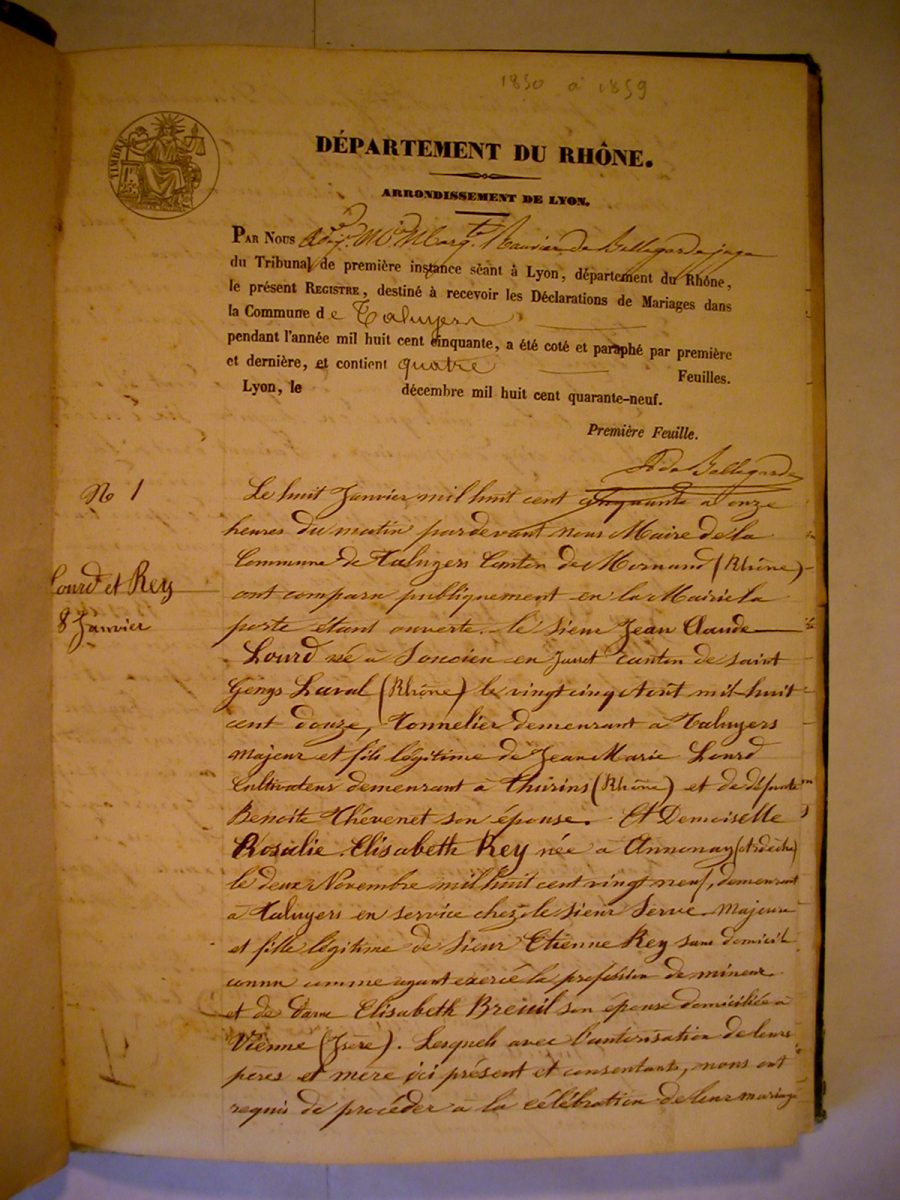 1850 à 1859
TIMBRE
DÉPARTEMENT DU RHÔNE.
ARRONDISSEMENT DE LYON.
PAR NOUS de Bellegarde juge
du Tribunal de première instance séant à Lyon, département du Rhône,
le présent REGISTRE, destiné à recevoir les Déclarations de Mariages dans
la Commune de Taluyers
pendant l'année mil huit cent cinquante, a été coté et paraphé par première
et dernière, et contient quatre Feuilles.
Lyon, le décembre mil huit cent quarante-neuf.
Première Feuille.
de Bellegarde
No 1
Lourd et Rey
8 Janvier
Le huit Janvier mil huit cent cinquante a onze
heures du matin pardevant nous Maire de la
Commune de Taluyers Canton de Mornand (Rhône)
ont comparu publiquement en la Mairie la
porte étant ouverte. le Sieur Jean Claude
Lourd né à Soucieu en Jarret canton de Saint
Genys Laval (Rhône) le vingt cinq Août mil huit
cent douze, Tonnelier demeurant à Taluyers
majeur et fils légitime de Jean Marie Lourd
Cultivateur demeurant à Thurins (Rhône) et de défunte
Benoite Thévenet son épouse. Et Demoiselle
Rosalie Elisabeth Rey née à Annonay (Ardèche)
le deux Novembre mil huit cent vingt neuf, demeurant
à Taluyers en service chez le Sieur Serve. Majeure
et fille légitime de Sieur Etienne Rey sans domicile
connu comme ayant exercé la profession de mineur.
et de Dame Elisabeth Breuil son épouse domiciliée a
Vienne (Isère). Lesquels avec l'autorisation de leurs
peres et mere ici présent et consentants, nous ont
requis de procéder a la célébration de leur mariage